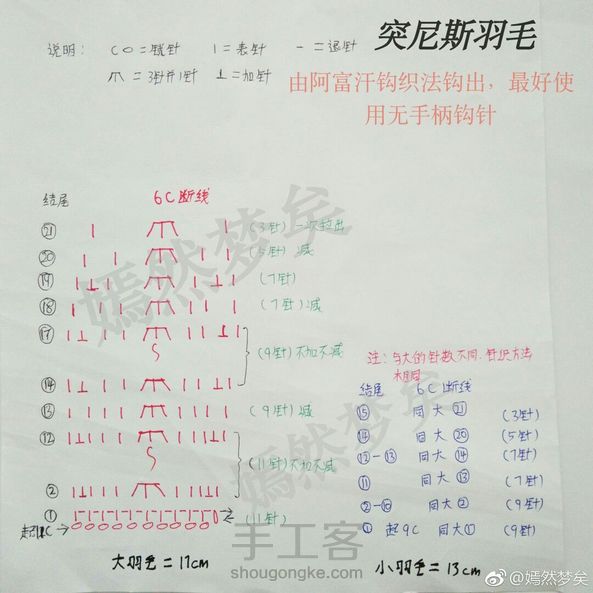 说明: CO=锁针 I=表针 -=退针
突尼斯羽毛
=3针并1针 ⊥=加针
由阿富汗钩织法钩出,最好使
用无手柄钩针
结尾 6C断线
㉑ (3针) 一次拉出
⑳ (5针) 减
⑲ (7针)
⑱ (7针) 减
⑰
(9针) 不加不减
⑭
⑬ (9针) 减
⑫
(11针) 不加不减
②
① (11针)
大羽毛=17cm
注: 与大的针数不同.针织方法
相同
结尾 6C断线
⑮ 同大㉑ (3针)
⑭ 同大⑳ (5针)
⑫-⑬ 同大⑭ (7针)
⑪ 同大⑬ (7针)
②-⑩ 同大② (9针)
① 起9C 同大① (9针)
小羽毛=13cm
嫣然梦矣
嫣然梦矣
手工客
shougongke.com
@嫣然梦矣